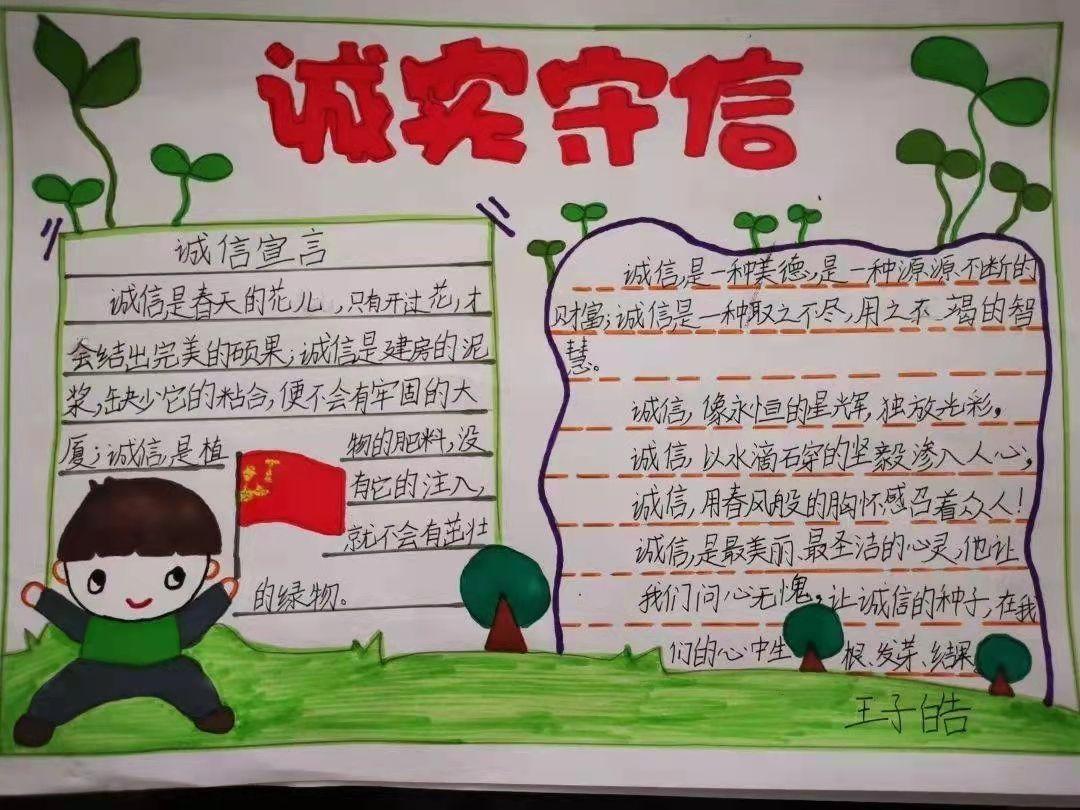 诚实守信
诚信宣言
诚信是春天的花儿，只有开过花，才
会结出完美的硕果；诚信是建房的泥
浆，缺少它的粘合，便不会有牢固的大
厦；诚信是植物的肥料，没
有它的注入，
就不会有茁壮
的绿物。
诚信，是一种美德，是一种源源不断的
财富；诚信是一种取之不尽，用之不竭的智
慧。
诚信，像永恒的星辉，独放光彩，
诚信，以水滴石穿的坚毅渗入人心，
诚信，用春风般的胸怀感召着众人！
诚信，是最美丽、最圣洁的心灵，他让
我们问心无愧，让诚信的种子，在我
们的心中生根、发芽、结果
王子皓